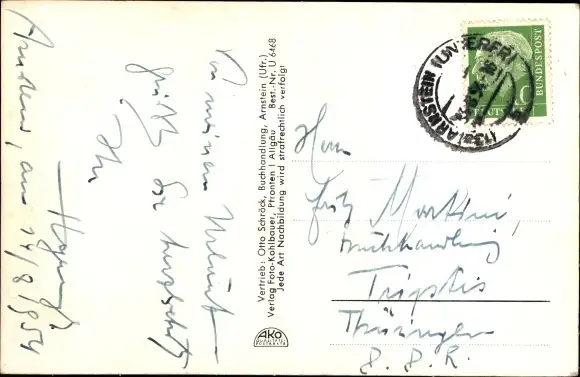 Arnstein, am 14/8 1954
Von meinem Urlaub
grüßt Sie herzlichst
Ihr
Vertrieb: Otto Schröck, Buchhandlung, Arnstein (Ufr.)
Verlag Foto-Kohlbauer, Pfronten i Allgäu Best.-Nr. U 6468
Jede Art Nachbildung wird strafrechtlich verfolgt
AKO
(13a) ARNSTEIN (UNTERFR)
DEUTSCHE
BUNDESPOST
Herrn
Fritz Martini,
Buchhandlung
Triptis
Thüringen
D. D. R.